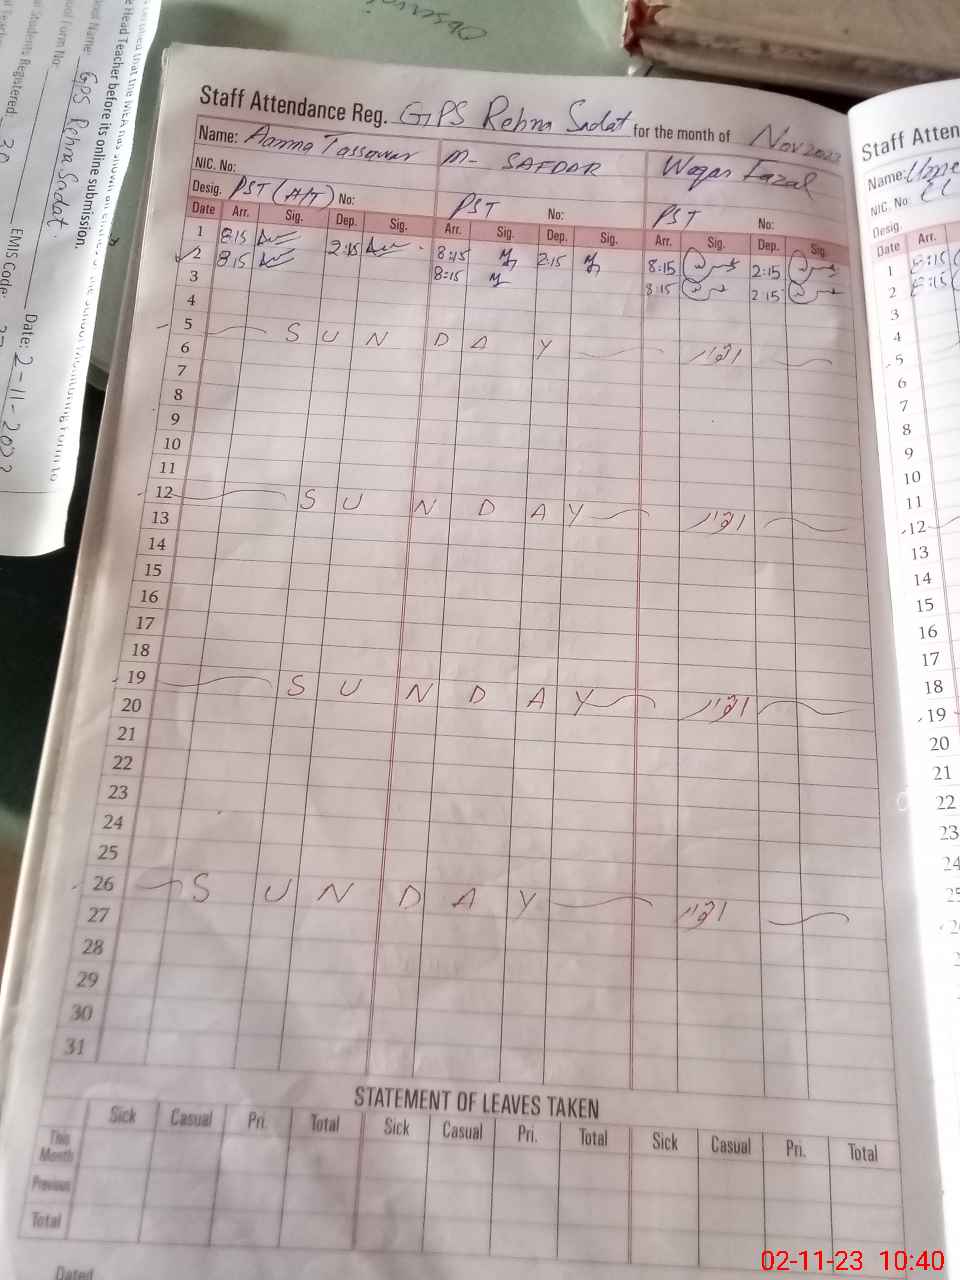 Staff Attendance Reg. GPS Rehra Sadat for the month of Nov 2023
Name: Aamna Tassawar M- SAFDAR Waqar Fazal
NIC. No:
Desig. PST (A/T) No: PST No: PST No:
Date Arr. Sig. Dep. Sig. Arr. Sig. Dep. Sig. Arr. Sig. Dep. Sig.
1 8:15 2:15 8:15 2:15 8:15 2:15
2 8:15 8:15 8:15 2:15
3
4
5 SUNDAY اتوار
6
7
8
9
10
11
12 SUNDAY اتوار
13
14
15
16
17
18
19 SUNDAY اتوار
20
21
22
23
24
25
26 SUNDAY اتوار
27
28
29
30
31
STATEMENT OF LEAVES TAKEN
Sick Casual Pri. Total Sick Casual Pri. Total Sick Casual Pri. Total
This Month
Previous
Total
Dated
Head Teacher before its online submission.
Name: GPS Rehra Sadat.
Form No:
Students Registered: 30 EMIS Code:
Date: 2-11-2023
Staff Atten
Name:
NIC. No
Desig.
Date Arr.
1 8:15
2 8:15
3
4
5
6
7
8
9
10
11
12
13
14
15
16
17
18
19
20
21
22
23
24
02-11-23 10:40